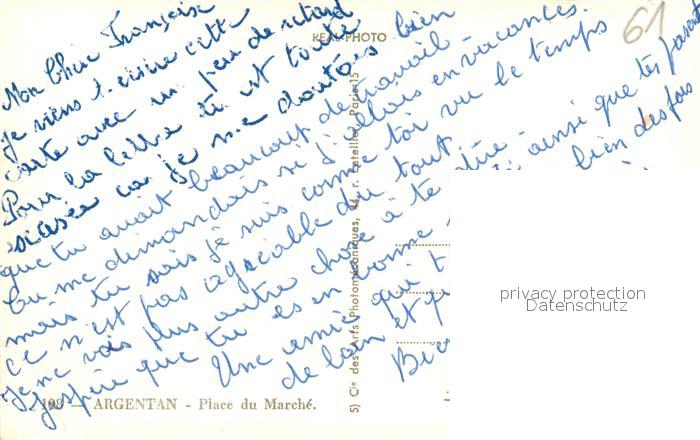 Mon Chère Françoise
je viens t'écrire cette
carte avec un peu de retard
Pour la lettre tu est toute
excusée car je me doutais bien
que tu avait beaucoup de travail.
tu me demandais si j'allais en vacances.
mais tu sais je suis comme toi vu le temps
ce n'est pas agréable du tout.
je ne vois plus autre chose à te dire
j'espère que tu es en bonne ainsi que tes parents
Une amie qui t bien des fois
de loin et
REAL PHOTO
61
S) Cie des Arts Photomécaniques, 44, r. Letellier, Paris-15
privacy protection
Datenschutz
108 — ARGENTAN - Place du Marché.